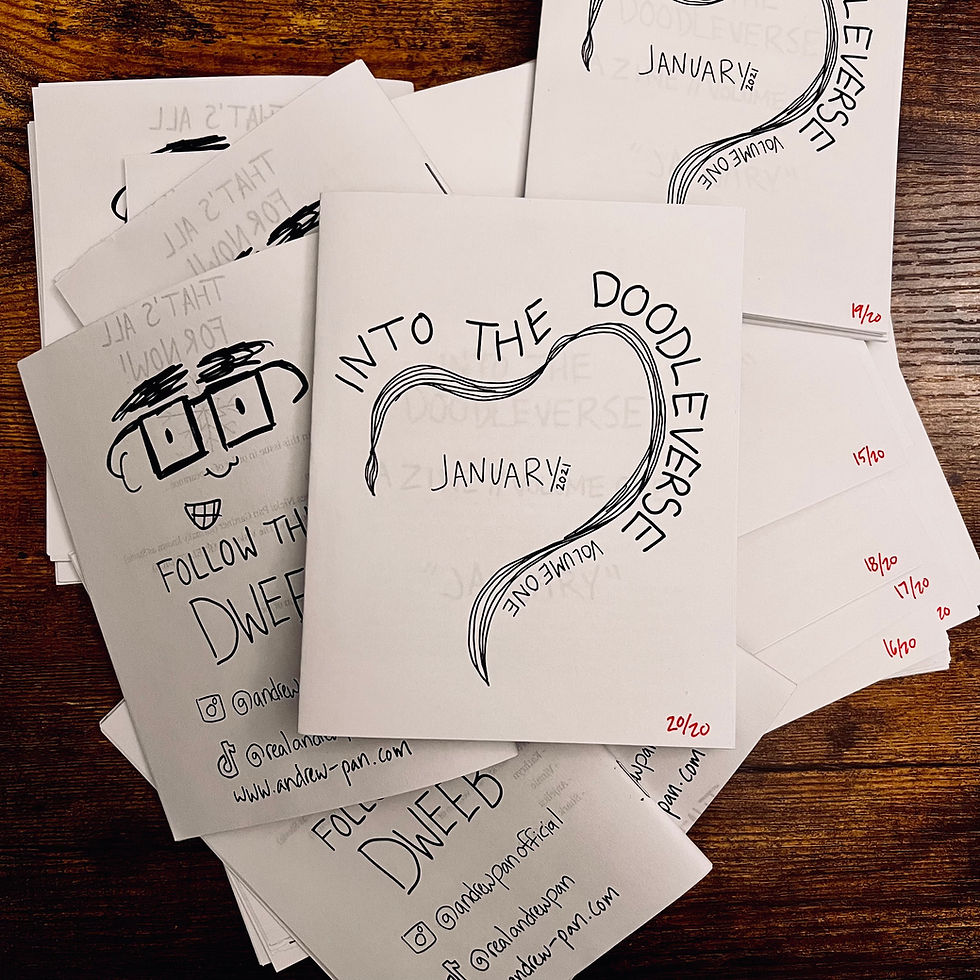 JANUARY 2021
DOODLEVERSE
VOLUME ONE
19/20
THAT'S ALL
THAT'S ALL
FOR NOW!
THAT'S ALL
FOR NOW!
INTO THE DOODLEVERSE
JANUARY 2021
VOLUME ONE
20/20
15/20
18/20
17/20
20
16/20
FOLLOW TH
DWEE
@andrew
@realandrew
www.andrew-pan.com
DWEEB
@andrewpanofficial
@realandrewpan
andrew-pan.com
pan.com